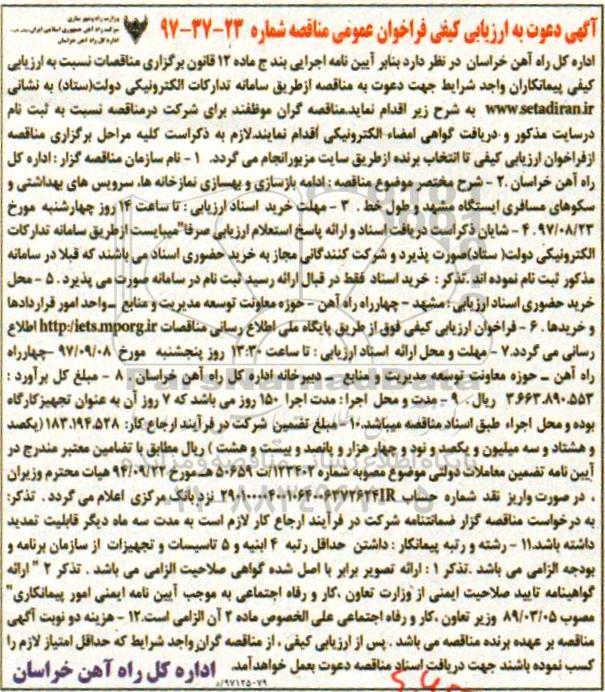 وزارت راه و شهرسازی
شرکت راه آهن جمهوری اسلامی ایران
اداره کل راه آهن خراسان
آگهی دعوت به ارزیابی کیفی فراخوان عمومی مناقصه شماره ۲۳-۳۷-۹۷
اداره کل راه آهن خراسان در نظر دارد بنابر آیین نامه اجرایی بند ج ماده ۱۲ قانون برگزاری مناقصات نسبت به ارزیابی
کیفی پیمانکاران واجد شرایط جهت دعوت به مناقصه ازطریق سامانه تدارکات الکترونیکی دولت(ستاد) به نشانی
www.setadiran.ir به شرح زیر اقدام نماید.مناقصه گران موظفند برای شرکت درمناقصه نسبت به ثبت نام
درسایت مذکور و دریافت گواهی امضاء الکترونیکی اقدام نمایند.لازم به ذکراست کلیه مراحل برگزاری مناقصه
ازفراخوان ارزیابی کیفی تا انتخاب برنده ازطریق سایت مزبورانجام می گردد. ۱- نام سازمان مناقصه گزار : اداره کل
راه آهن خراسان .۲- شرح مختصر موضوع مناقصه : ادامه بازسازی و بهسازی نمازخانه ها، سرویس های بهداشتی و
سکوهای مسافری ایستگاه مشهد و طول خط . ۳- مهلت خرید اسناد ارزیابی : تا ساعت ۱۴ روز چهارشنبه مورخ
۹۷/۰۸/۲۳. ۴- شایان ذکراست دریافت اسناد و ارائه پاسخ استعلام ارزیابی صرفا"میبایست ازطریق سامانه تدارکات
الکترونیکی دولت( ستاد)صورت پذیرد و شرکت کنندگانی مجاز به خرید حضوری اسناد می باشند که قبلا در سامانه
مذکور ثبت نام نموده اند .تذکر : خرید اسناد فقط در قبال ارائه رسید ثبت نام در سامانه صورت می پذیرد . ۵- محل
خرید حضوری اسناد ارزیابی : مشهد - چهارراه راه آهن - حوزه معاونت توسعه مدیریت و منابع – واحد امور قراردادها
و خریدها . ۶- فراخوان ارزیابی کیفی فوق از طریق پایگاه ملی اطلاع رسانی مناقصات http:/iets.mporg.ir اطلاع
رسانی می گردد.۷- مهلت و محل ارائه اسناد ارزیابی : تا ساعت ۱۳:۳۰ روز پنجشنبه مورخ ۹۷/۰۹/۰۸ –چهارراه
راه آهن – حوزه معاونت توسعه مدیریت و منابع – دبیرخانه اداره کل راه آهن خراسان . ۸- مبلغ کل برآورد :
۳،۶۶۳،۸۹۰،۵۵۳ ریال. ۹- مدت و محل اجرا: مدت اجرا ۱۵۰ روز می باشد که ۷ روز آن به عنوان تجهیزکارگاه
بوده و محل اجراء طبق اسناد مناقصه میباشد.۱۰- مبلغ تضمین شرکت در فرآیند ارجاع کار: ۱۸۳،۱۹۴،۵۲۸(یکصد
و هشتاد و سه میلیون و یکصد و نود و چهار هزار و پانصد و بیست و هشت ) ریال مطابق با تضامین معتبر مندرج در
آیین نامه تضمین معاملات دولتی موضوع مصوبه شماره ۱۲۳۴۰۲/ت ۵۰۶۵۹ هـ مورخ ۹۴/۰۹/۲۲ هیات محترم وزیران
، در صورت واریز نقد شماره حساب IR نزد بانک مرکزی اعلام می گردد . تذکر:
به درخواست مناقصه گزار ضمانتنامه شرکت در فرآیند ارجاع کار لازم است به مدت سه ماه دیگر قابلیت تمدید
داشته باشد.۱۱- رشته و رتبه پیمانکار : داشتن حداقل رتبه ۴ ابنیه و ۵ تاسیسات و تجهیزات از سازمان برنامه و
بودجه الزامی می باشد .تذکر ۱ : ارائه تصویر برابر با اصل شده گواهی صلاحیت الزامی می باشد . تذکر ۲ " ارائه
گواهینامه تایید صلاحیت ایمنی از وزارت تعاون ،کار و رفاه اجتماعی به موجب آیین نامه ایمنی امور پیمانکاری"
مصوب ۸۹/۰۳/۰۵ وزیر تعاون ،کار و رفاه اجتماعی علی الخصوص ماده ۲ آن الزامی است.۱۲- هزینه دو نوبت آگهی
مناقصه بر عهده برنده مناقصه می باشد . پس از ارزیابی کیفی ، از مناقصه گران واجد شرایط که حداقل امتیاز لازم را
کسب نموده باشند جهت دریافت اسناد مناقصه دعوت بعمل خواهدآمد.
اداره کل راه آهن خراسان
۹۷۱۲۵۰۷۹/ف
ParsNamadData
۰۲۱-۸۸۳۴۹۶۷۰-۵